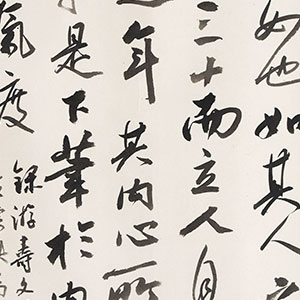 如也如其人
三十而立人自
年其内心一
是下筆於内
氣度
錄游壽文